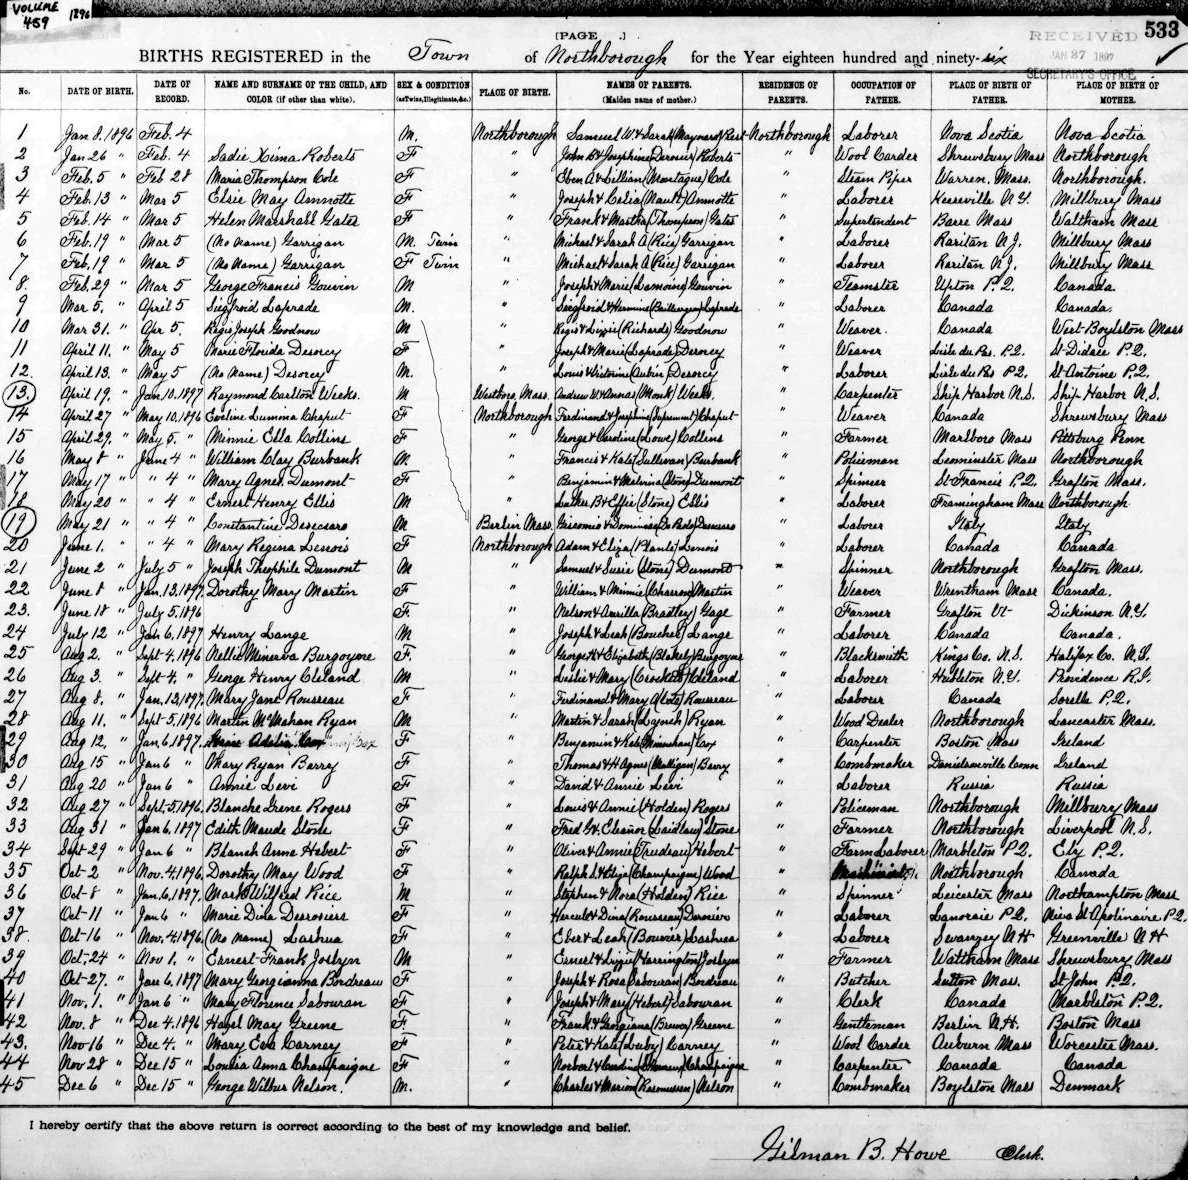 VOLUME 1896
459
533
[PAGE ]
RECEIVED
JAN 27 1897
SECRETARY'S OFFICE
BIRTHS REGISTERED in the Town of Northborough for the Year eighteen hundred and ninety-six
No. DATE OF BIRTH. DATE OF RECORD. NAME AND SURNAME OF THE CHILD, AND COLOR (if other than white). SEX & CONDITION (as Twins, Illegitimate, &c.) PLACE OF BIRTH. NAMES OF PARENTS. (Maiden name of mother.) RESIDENCE OF PARENTS. OCCUPATION OF FATHER. PLACE OF BIRTH OF FATHER. PLACE OF BIRTH OF MOTHER.
1 Jan 8. 1896 Feb. 4 M. Northborough Samuel W. & Sarah (Maynard) Northborough Laborer Nova Scotia Nova Scotia
2 Jan 26 " Feb. 4 Sadie Xima Roberts F " John B & Josephine (Derosier) Roberts " Wool Carder Shrewsbury Mass Northborough
3 Feb. 5 " Feb 28 Maria Thompson Cole F " Eben A & Lillian (Montague) Cole " Steam Piper Warren, Mass. Northborough.
4 Feb. 13 " Mar 5 Elsie May Amnotte F " Joseph & Celia (Nault) Amnotte " Laborer Keeseville N.Y. Millbury Mass
5 Feb. 14 " Mar 5 Helen Marshall Gates F " Frank & Martha (Thompson) Gates " Supertendent Barre Mass Waltham Mass
6 Feb. 19 " Mar 5 (No Name) Garrigan M. Twin " Michael & Sarah A (Rice) Garrigan " Laborer Raritan N.J. Millbury Mass
7 Feb. 19 " Mar 5 (No Name) Garrigan F Twin " Michael & Sarah A (Rice) Garrigan " Laborer Raritan N.J. Millbury Mass
8. Feb. 29 " Mar 5 George Francis Gouvin M " Joseph & Marie (Lamoine) Gouvin " Teamster Upton P.Q. Canada.
9 Mar 5. " April 5 Siegfroid Laprade M. " Siegfroid & Laprade " Laborer Canada Canada.
10 Mar 31. " Apr 5. Regis Joseph Goodnow M " Regis & Lizzie (Richards) Goodnow " Weaver. Canada West Boylston Mass
11 April 11. " May 5 Marie Florida Desorcy F " Joseph & Marie (Laprade) Desorcy " Weaver P.Q. St Didace P.Q.
12. April 13. " May 5 (No Name) Desorcy M. " Louis & Victorine (Aubin) Desorcy " Laborer P.Q. St Antoine P.Q.
13. April 19. " Jan. 10. 1897 Raymond Carlton Weeks. M Westboro, Mass. Andrew W & Annas (Monk) Weeks. " Carpenter Ship Harbor N.S. Ship Harbor N.S.
14 April 27 " May 10. 1896 Eveline Lumina Chaput F Northborough Ferdinand & Josephine (Supernant) Chaput " Weaver Canada Shrewsbury Mass
15 April 29. " May 5. " Minnie Ella Collins F " George & Caroline (Lowe) Collins " Farmer Marlboro Mass Pittsburg Penn
16 May 8 " June 4 " William Clay Burbank M " Francis & Kate (Sullivan) Burbank " Policeman Leominster Mass Northborough
17 May 17 " " 4 " Mary Agnes Dumont F " Benjamin & Melvina (Stone) Dumont " Spinner St Francis P.Q. Grafton Mass.
18 May 20 " " 4 " Ernest Henry Ellis M " Luther B & Effie (Stone) Ellis " Laborer Framingham Mass Northborough
19 May 21 " " 4 " Constantine Desecsaro M Berlin Mass. " Laborer Italy Italy
20 June 1. " " 4 " Mary Regina Lenois F Northborough Adam & Eliza (Plante) Lenois " Laborer Canada Canada
21 June 2 " July 5 " Joseph Theophile Dumont M " Samuel & Susie (Stone) Dumont " Spinner Northborough Grafton Mass.
22 June 8 " Jan. 13. 1897. Dorothy Mary Martin F " William & Minnie (Charron) Martin " Weaver Wrentham Mass Canada.
23. June 18 " July 5. 1896 F " Nelson & Amilla (Bradley) Gage " Farmer Grafton Vt Dickinson N.Y.
24 July 12 " Jan. 6. 1897 Henry Lange M " Joseph & Leah (Boucher) Lange " Laborer Canada Canada.
25 Aug 2. " Sept. 4. 1896 Nellie Minerva Burgoyne F. " George H & Elizabeth (Blakely) Burgoyne " Blacksmith Kings Co. N.S. Halifax Co. N.S.
26 Aug 3. " Sept 4. " George Henry Cleland M " Leslie & Mary (Crockett) Cleland " Laborer N.Y. Providence R.I.
27 Aug 8. " Jan. 13, 1897. Mary Jane Rousseau F " Ferdinand & Mary Rousseau " Laborer Canada Sorelle P.Q.
28 Aug 11. " Sept 5, 1896 Martin McMahan Ryan M " Martin & Sarah (Lynch) Ryan " Wood Dealer Northborough Lancaster Mass.
29 Aug 12. " Jan. 6. 1897. Cox F " Benjamin & Kate Cox " Carpenter Boston Mass Ireland
30 Aug 15 " Jan 6 " Mary Ryan Barry F " Thomas & H Agnes (Mulligan) Barry " Combmaker Danielsonville Conn Ireland
31 Aug 20 " Jan 6 " Annie Levi F " David & Annie Levi " Laborer Russia Russia
32 Aug 27 " Sept. 5, 1896. Blanche Irene Rogers F " Louis & Annie (Holden) Rogers " Policeman Northborough Millbury Mass
33 Aug 31 " Jan 6. 1897 Edith Maude Stone F " Fred G & Eleanor (Laidlaw) Stone " Farmer Northborough Liverpool N.S.
34 Sept 29 " Jan 6 " Blanch Anne Hebert F " Oliver & Annie (Trudeau) Hebert " Farm Laborer Marbleton P.Q. Ely P.Q.
35 Oct 2 " Nov. 4. 1896. Dorothy May Wood F " Ralph L & Eliza (Champaigne) Wood " Machinist Northborough Canada
36 Oct 8 " Jan. 6, 1897. Mark Wilfred Rice M " Stephen & Nora (Holden) Rice " Spinner Leicester Mass Northampton Mass
37 Oct 11 " Jan 6 " Marie Dina Desrosiers F " Hercule & Dina (Rousseau) Derosier " Laborer Lanoraie P.Q. St Apolinaire P.Q.
38. Oct 16 " Nov. 4 1896. (No name) Lashua F " Eber & Leah (Bouvier) Lashua " Laborer Swanzey N.H Greenville N H
39 Oct. 24 " Nov 1. " Ernest Frank Joslyn M " Ernest & Lizzie (Harrington) Joslyn " Farmer Waltham Mass Shrewsbury Mass
40 Oct 27. " Jan 6. 1897 Mary Georgianna Bordreau F " Joseph & Rosa (Sabouran) Bordreau " Butcher Sutton Mass. St John P.Q.
41 Nov. 1. " Jan 6 " Mary Florence Sabouran F " Joseph & Mary (Hebert) Sabouran " Clerk Canada Marbleton P.Q.
42 Nov. 8 " Dec 4. 1896 Hazel May Greene F " Frank & Georgiana (Brewer) Greene " Gentleman Berlin N.H. Boston Mass
43. Nov 16 " Dec 4. " Mary Eva Carney F " Peter & Kate (Luby) Carney " Wool Carder Auburn Mass Worcester Mass.
44 Nov 28 " Dec 15 " Louisa Anna Champaigne F " Norbert & Champaigne " Carpenter Canada Canada
45 Dec 6 " Dec 15 " George Wilbur Nelson. M. " Charles & Marion (Rasmussen) Nelson " Combmaker Boylston Mass Denmark
I hereby certify that the above return is correct according to the best of my knowledge and belief.
Gilman B. Howe Clerk.